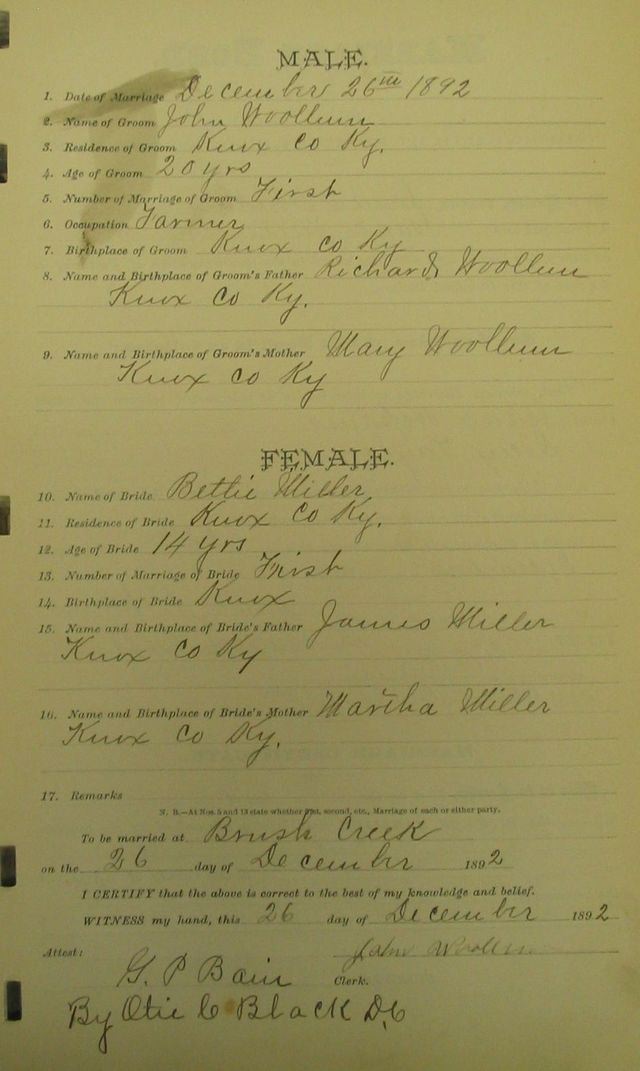 MALE.
1. Date of Marriage December 26th 1892
2. Name of Groom John Woollum
3. Residence of Groom Knox Co Ky.
4. Age of Groom 20 yrs
5. Number of Marriage of Groom First
6. Occupation Farmer
7. Birthplace of Groom Knox Co Ky
8. Name and Birthplace of Groom's Father Richard Woollum
Knox Co Ky.
9. Name and Birthplace of Groom's Mother Mary Woollum
Knox Co Ky
FEMALE.
10. Name of Bride Bettie Miller
11. Residence of Bride Knox Co Ky.
12. Age of Bride 14 yrs
13. Number of Marriage of Bride First
14. Birthplace of Bride Knox
15. Name and Birthplace of Bride's Father James Miller
Knox Co Ky
16. Name and Birthplace of Bride's Mother Martha Miller
Knox Co Ky.
17. Remarks
N. B.—At Nos. 5 and 13 state whether first, second, etc., Marriage of each or either party.
To be married at Brush Creek
on the 26 day of December 1892
I CERTIFY that the above is correct to the best of my knowledge and belief.
WITNESS my hand, this 26 day of December 1892
Attest: John Woollum
G. P Bain Clerk.
By Otie C Black D.C